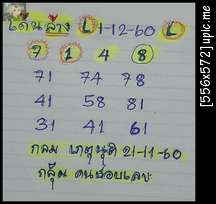 เด่นล่าง 1-12-60 L
7 1 4 8
71 74 78
41 58 81
31 41 61
กลม 21-11-60
กลุ้ม คนชอบเลข
[556x572] upic.me